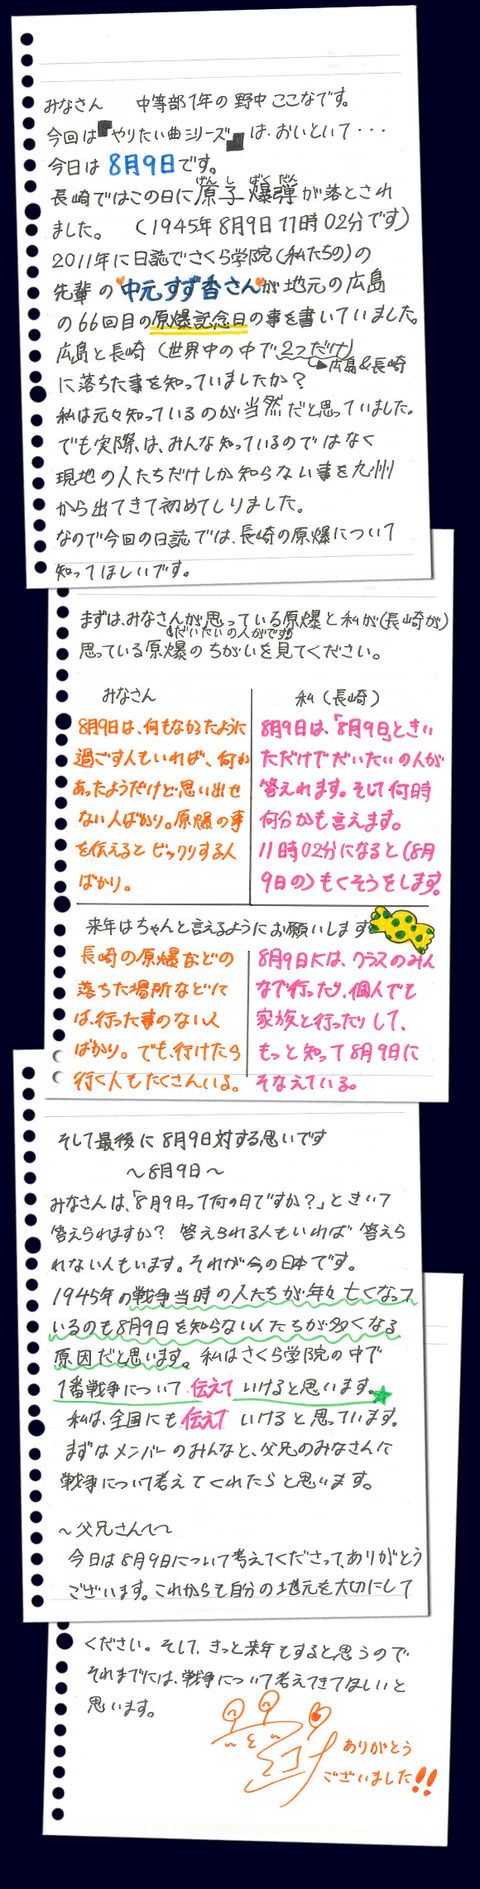 みなさん　中等部1年の野中ここなです。
今回は『やりたい曲シリーズ』は、おいといて・・・
今日は8月9日です。
長崎ではこの日に原子爆弾が落とされ
げんしばくだん
ました。（1945年8月9日11時02分です）
2011年に日誌でさくら学院（私たちの）の
先輩の中元すず香さんが地元の広島
の66回目の原爆記念日の事を書いていました。
広島と長崎（世界中の中で2つだけ）
→広島&長崎
に落ちた事を知っていましたか？
私は元々知っているのが当然だと思っていました。
でも実際は、みんな知っているのではなく
現地の人たちだけしか知らない事を九州
から出てきて初めてしりました。
なので今回の日誌では、長崎の原爆について
知ってほしいです。
まずは、みなさんが思っている原爆と私が（長崎が）
（だいたいの人がです）
思っている原爆のちがいを見てください。
みなさん
8月9日は、何もなかったように
過ごす人もいれば、何か
あったようだけど思い出せ
ない人ばかり。原爆の事
を伝えるとビックリする人
ばかり。
私（長崎）
8月9日は、「8月9日」ときい
ただけでだいたいの人が
答えれます。そして何時
何分かも言えます。
11時02分になると（8月
9日の）もくそうをします。
来年はちゃんと言えるようにお願いします
長崎の原爆などの
落ちた場所などに
は、行った事のない人
ばかり。でも、行けたら
行く人もたくさんいる。
8月9日には、クラスのみん
なで行ったり、個人でも
家族と行ったりして、
もっと知って8月9日に
そなえている。
そして最後に8月9日対する思いです
〜8月9日〜
みなさんは、「8月9日って何の日ですか？」ときいて
答えられますか？答えられる人もいれば答えら
れない人もいます。それが今の日本です。
1945年の戦争当時の人たちが年々亡くなって
いるのも8月9日を知らない人たちが多くなる
原因だと思います。私はさくら学院の中で
1番戦争について伝えていけると思います。
私は、全国にも伝えていけると思っています。
まずはメンバーのみんなと、父兄のみなさんに
戦争について考えてくれたらと思います。
〜父兄さんへ〜
今日は8月9日について考えてくださって、ありがとう
ございます。これからも自分の地元を大切にして
ください。そして、きっと来年もすると思うので
それまでには、戦争について考えてきてほしいと
思います。
ありがとう
ございました!!